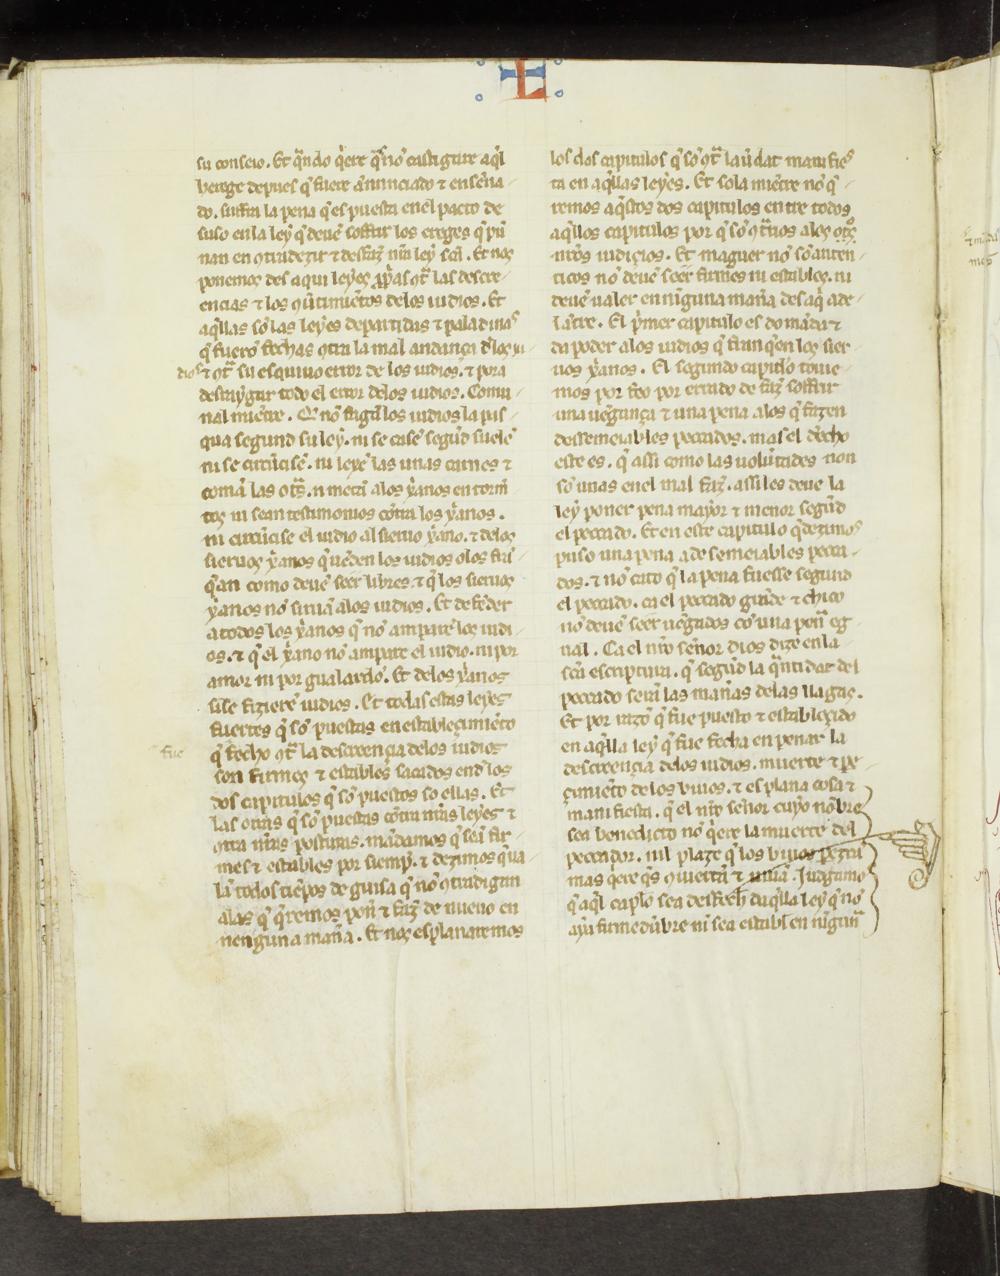 L
su conseio. Et q̃ndo q̃ere q̃ no castigare aq̃l
herege depues q̃ fuere a'nunciado τ enseña
do. suffra la pena q̃ es puesta en el pacto de
suso en la ley q̃ deuẽ soffrir los ereges q̃ pũ
nan en 9tradezir τ desfaz̃ nr̃a ley sc̃a. Et nos
ponemos des aqui leyes ꝓp̃as 9t̃ las descre
encias τ los
aq̃llas sõ las leyes departidas τ paladinas
q̃ fuerõ fechas 9tra la mal andança d'los iu
dios τ 9t̃ su esquiuo error de los iudios. τ pora
destruygar todo el error delos iudios. Comu
nal miẽtre. Q̃ nõ fagã los iudios la pas
qua segund su ley. ni se casẽ segũd suelẽ
ni se circũcisẽ. ni leyẽ las unas carnes τ
comã las ot̃s. ni metã alos x̃anos en tormẽ
tos ni sean testimonios cõtra los x̃anos.
ni circũcise el iudio al sieruo x̃ano. τ delos
sieruos x̃anos q̃ uẽden los iudios o los frã
q̃an como deuẽ seer libres τ q̃ los sieruos
x̃anos nõ siruã alos iudios. Et defẽder
a todos los x̃anos q̃ nõ amparẽ los iudi
os. τ q̃ el x̃ano nõ ampare el iudio. ni por
amor ni por gualardõ. Et delos x̃anos
si se fizierẽ iudios. Et todas estas leyes
fuertes q̃ sõ puestas en establecimiẽto
fue
q̃ fecho 9t̃ la descreencia delos iudios
son firmes τ estables sacados end los
dos capitulos q̃ sõ puestos so ellas. Et
las otras q̃ sõ puestas cõtra nr̃as leyes τ
9tra nr̃as posturas. mãdamos q̃ seã fir
mes τ estables por siemp̃. τ dezimos q̃ ua
lã todos tiẽpos de guisa q̃ nõ 9tradigan
alas q̃ q̃remos pon̉ τ faz̃ de nueuo en
nenguna mañã. Et nos esplanaremos
los dos capitulos q̃ sõ 9t̃ la ũdat manifies
ta en aq̃llas leyes. Et sola miẽtre nõ q̃
remos aq̃stos dos capitulos entre todos
aq̃llos capitulos por q̃ sõ 9t̃rios alos ot̃s
nr̃os iudicios. Et maguer nõ sõ auten
ticos nõ deuẽ seer firmes ni estables. ni
deuẽ ualer en nĩguna mañã des aq̃ ade
lãtre. El p̃mer capitulo es do mãda τ
da poder alos iudios q̃ franq̃en los sier
uos x̃anos. El segundo capitulo toue
mos por feo por errado de faz̃ soffrir
una uẽgança τ una pena alos q̃ fazen
dessemeiables peccados. mas el d̃cho
este es. q̃ assi como las uolũtades non
sõ unas en el mal faz̃. assi les deue la
ley poner pena mayor τ menor segũd
el peccado. Et en este capitulo q̃ dezimos
puso una pena a desemeiables pecca
dos. τ nõ cato q̃ la pena fuesse segund
el peccado. ca el peccado grãde τ chico
nõ deuẽ seer uẽgados cõ una pena eg
ual. Ca el nr̃o señor dios dize en la
sc̃a escriptura. q̃ segũd la q̃ntidat del
peccado serã las mañas delas llagas.
Et por razõ q̃ fue puesto τ establecido
en aq̃lla ley q̃ fue fecha en penar la
descreencia delos iudios. muerte τ pe
cimiẽto de los biuos. τ es plana cosa τ
manifiesta. q̃ el nr̃o señor cuyo nõbre
sea benedicto nõ q̃ere la muerte del
peccador. nil plaze q̃ los biuos pezcã
mas q̃ere q̃s 9uiertã τ uiuã. Iudgamo
q̃ aq̃l cap̃lo sea desfech̃ daq̃lla ley q̃ nõ
aya firmedũbre ni sea estabł en nĩgun